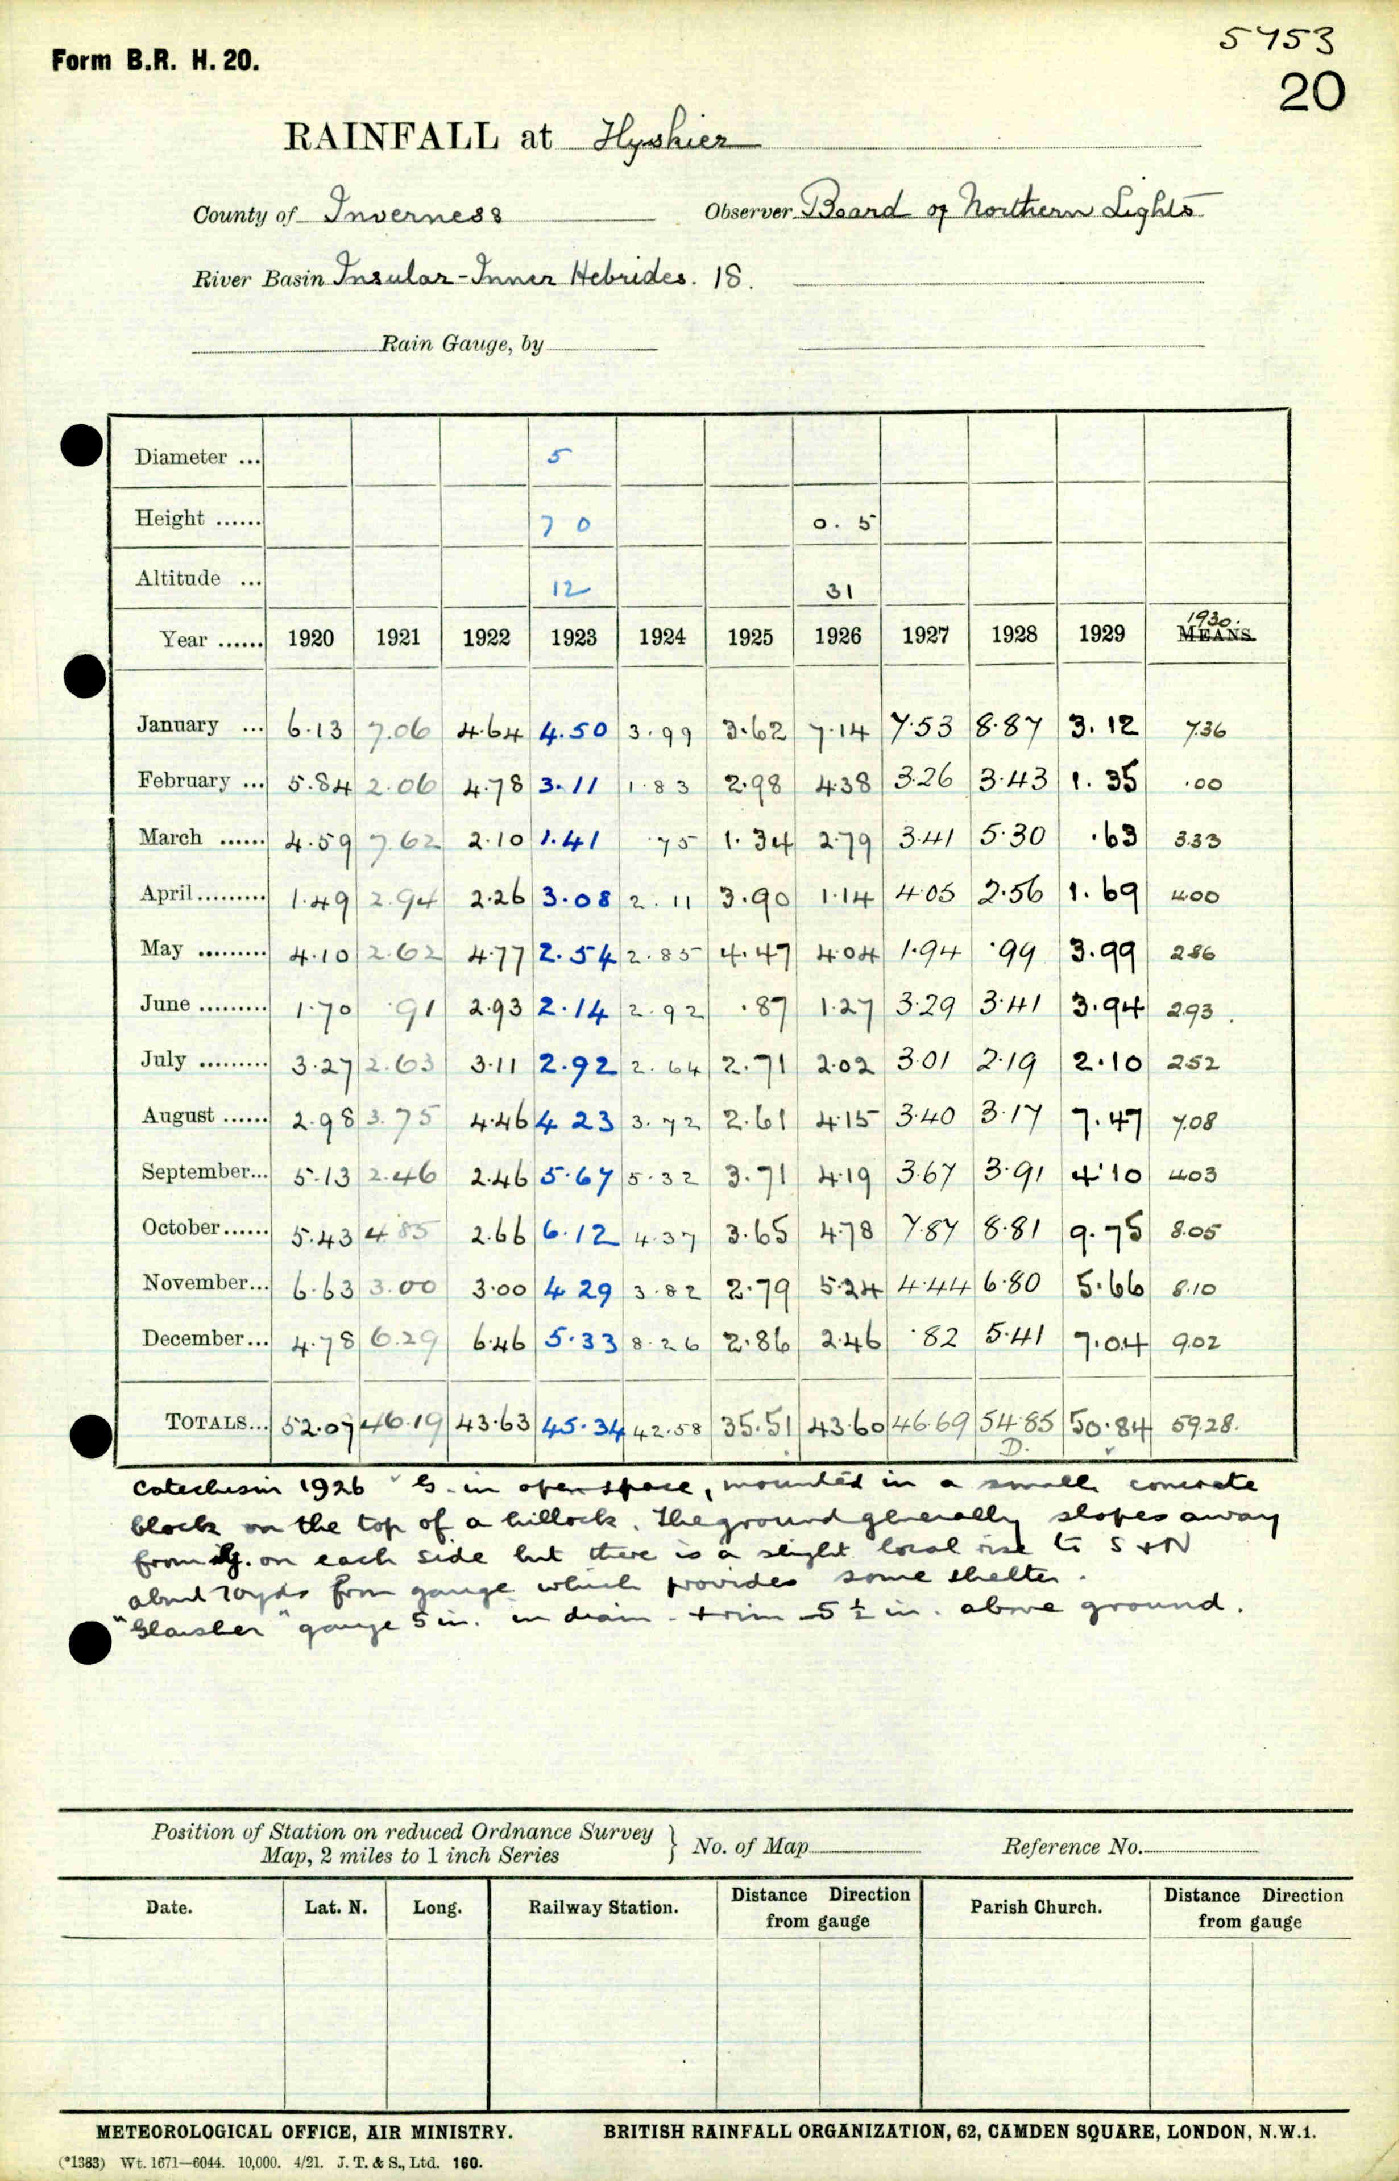 5753
Form B.R. H. 20.
20
RAINFALL at Hyskier
County of Inverness Observer Board of Northern Lights
River Basin Insular-Inner Hebrides. 18.
Rain Gauge, by
Diameter ... 5
Height ...... 7 0 0.5
Altitude ... 12 31
Year ...... 1920 1921 1922 1923 1924 1925 1926 1927 1928 1929 1930. MEANS
January ... 6.13 7.06 4.64 4.50 3.99 3.62 7.14 7.53 8.87 3.12 7.36
February ... 5.84 2.06 4.78 3.11 1.83 2.98 4.38 3.26 3.43 1.35 .00
March ...... 4.59 7.62 2.10 1.41 .75 1.34 2.79 3.41 5.30 .63 3.33
April ......... 1.49 2.94 2.26 3.08 2.11 3.90 1.14 4.05 2.56 1.69 4.00
May ......... 4.10 2.62 4.77 2.54 2.85 4.47 4.04 1.94 .99 3.99 2.86
June ......... 1.70 .91 2.93 2.14 2.92 .87 1.27 3.29 3.41 3.94 2.93
July ......... 3.27 2.63 3.11 2.92 2.64 2.71 2.02 3.01 2.19 2.10 2.52
August ...... 2.98 3.75 4.46 4 23 3.72 2.61 4.15 3.40 3.17 7.47 7.08
September... 5.13 2.46 2.46 5.67 5.32 3.71 4.19 3.67 3.91 4.10 4.03
October...... 5.43 4.85 2.66 6.12 4.37 3.65 4.78 7.87 8.81 9.75 8.05
November... 6.63 3.00 3.00 4 29 3.82 2.79 5.24 4.44 6.80 5.66 8.10
December... 4.78 6.29 6.46 5.33 8.26 2.86 2.46 .82 5.41 7.04 9.02
TOTALS... 52.07 46.19 43.63 45.34 42.58 35.51 43.60 46.69 54.85 50.84 59.28.
D.
Catechism 1926 G. in open space, mounted in a small concrete
block on the top of a hillock. The ground generally slopes away
from g. on each side but there is a slight local rise to S & N
about 70yds from gauge which provides some shelter.
"Glaisher" gauge 5 in. in diam. & rim 5½ in. above ground.
Position of Station on reduced Ordnance Survey
Map, 2 miles to 1 inch Series } No. of Map Reference No.
Date. Lat. N. Long. Railway Station. Distance Direction from gauge Parish Church. Distance Direction from gauge
METEOROLOGICAL OFFICE, AIR MINISTRY. BRITISH RAINFALL ORGANIZATION, 62, CAMDEN SQUARE, LONDON, N.W.1.
(*1383) Wt. 1671—6044. 10,000. 4/21. J. T. & S., Ltd. 160.